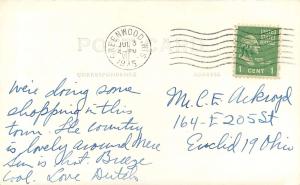 GREENWOOD, WIS.
JUL 3
PM
POST CARD
CORRESPONDENCE
ADDRESS
1 CENT 1
We're doing some
shopping in this
town. The country
is lovely around here
Sun is hot. Breeze
cool. Love Dutch
M. C. E. Ackroyd
164-E 205 St
Euclid 19 Ohio